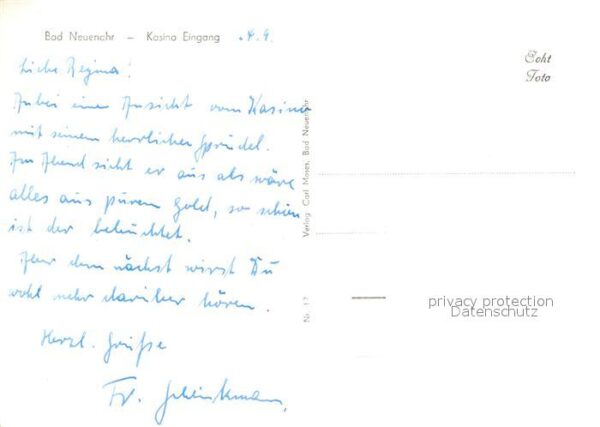 Bad Neuenahr – Kasino Eingang 4.9.
Liebe Regina!
Anbei eine Ansicht vom Kasino
mit seinem herrlichen Sprudel.
Am Abend sieht er aus als wäre
alles aus purem Gold, so schön
ist der beleuchtet.
Aber demnächst wirst Du
wohl mehr darüber hören.
Herzl. Grüße
Fr.
Echt
Foto
Verlag Carl Moses, Bad Neuenahr
Nr. 17
privacy protection
Datenschutz